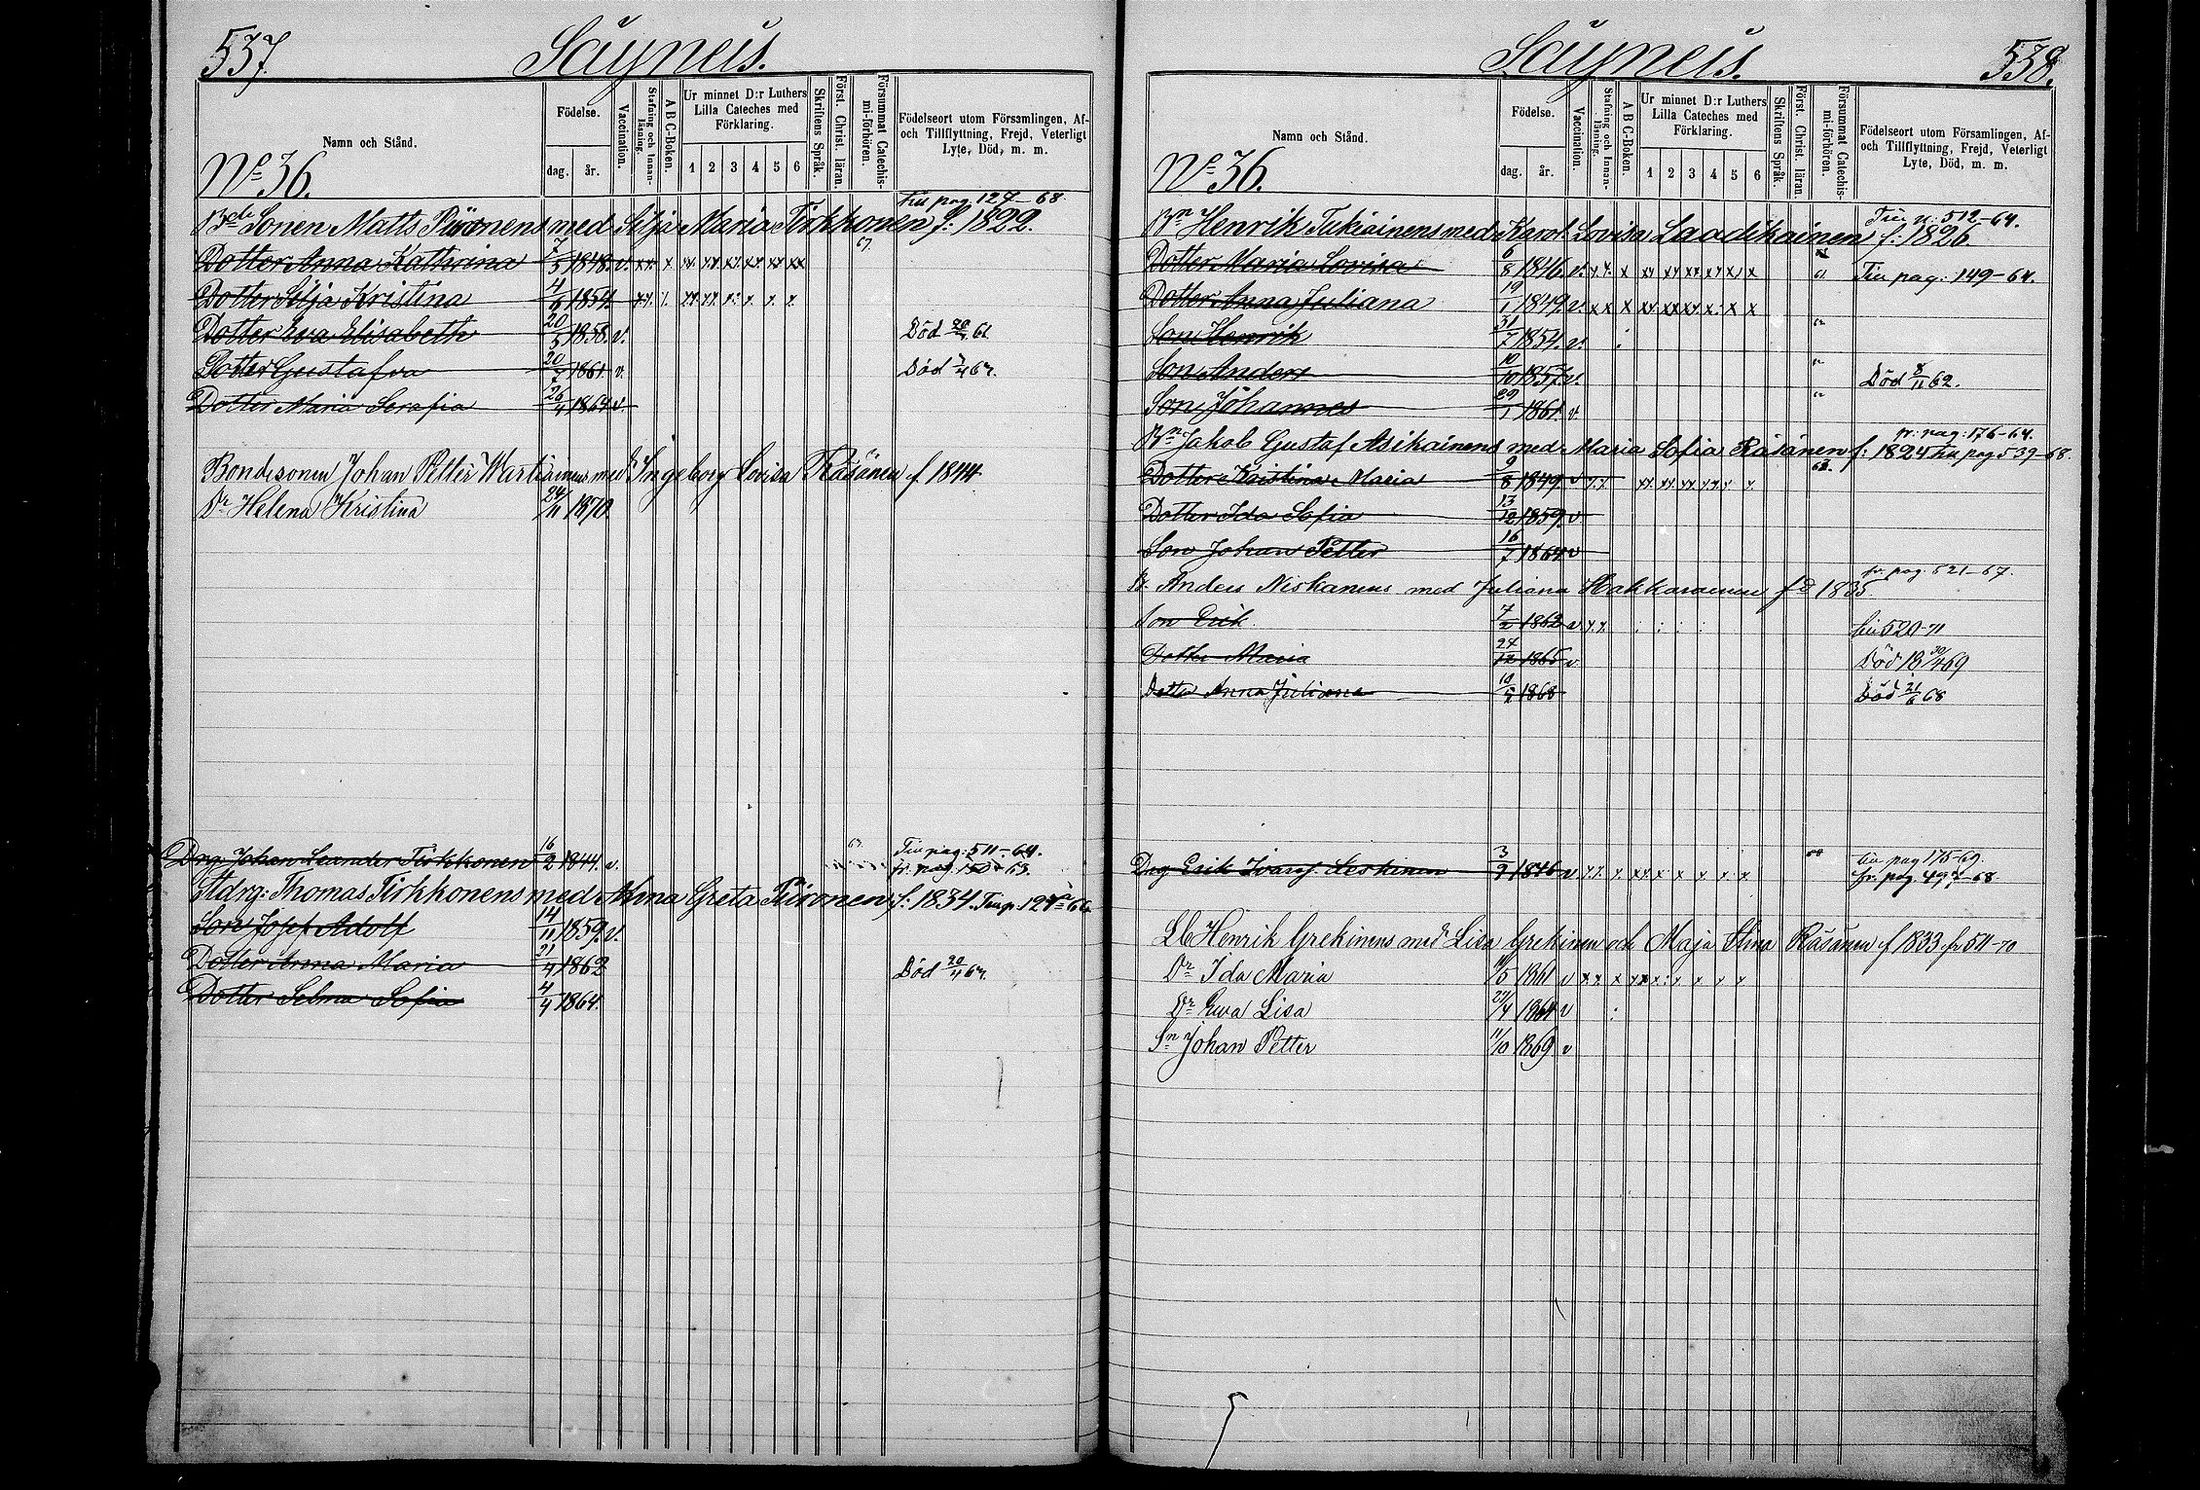 537. Säyneis.
Namn och Stånd. Födelse. dag. år. Vaccination. Stafning och Innanläsning. A B C-Boken. Ur minnet D:r Luthers Lilla Cateches med Förklaring. 1 2 3 4 5 6 Skriftens Språk. Först. Christ. läran. Försummat Catechismi-förhören. Födelseort utom Församlingen, Af- och Tillflyttning, Frejd, Veterligt Lyte, Död, m. m.
No 36.
pag 127–68.
Sonen Matts Piironens med Silja Maria Tirkkonen f: 1822.
Dotter Anna Kathrina 7/5 1848. v. xx. x xx xx xx xx xx xx 67.
Dotter Silja Kristina 4/6 1854
Dotter Eva Elisabeth 20/5 1858. v. Död 61
Dotter Gustafva 20/7 1861 v. Död
Dotter Maria Serafia 26/4 1864 v.
Bondesonen Johan Petter Ingeborg Lovisa Räsänen f. 1844
Dr Helena Kristina 24/11 1870.
Drg. Johan Leander Tirkkonen 16/2 1844. v. Till pag: 511–64.
fr. pag. 63.
Thomas Tirkkonens med Anna Greta Piironen f: 1834.
Son Josef Adolf 14/11 1859. v.
Dotter Anna Maria 21/4 1862 Död 20/4
Dotter Selma Sofia 4/4 1864.
Säyneis. 538.
Namn och Stånd. Födelse. dag. år. Vaccination. Stafning och Innanläsning. A B C-Boken. Ur minnet D:r Luthers Lilla Cateches med Förklaring. 1 2 3 4 5 6 Skriftens Språk. Först. Christ. läran Försummat Catechismi-förhören. Födelseort utom Församlingen, Af- och Tillflyttning, Frejd, Veterligt Lyte, Död, m. m.
No 36.
512–64.
Bn Henrik Tukiainens med Karol. Lovisa Laadikainen f: 1826
Dotter Maria Lovisa 6/8 1846 v. pag: 149–64.
Dotter Anna Juliana 19/1 1849 v. xx x
Son Henrik 31/7 1854. v.
Son Anders 10/10 1857 v. Död 8/11 62.
Son Johannes 29/1 1861. v.
fr: pag: 176–64.
Bn Jakob Gustaf Asikainens med Maria Sofia Räsänen f: 1824 pag 539–68.
Dotter Kristina Maria 9/8 1849 v
Dotter Ida Sofia 13/12 1859. v
Son Johan Petter 16/7 1864 v
fr. pag. 521–67.
B. Anders Niskanens med Juliana Hakkarainen fd 1835
Son Erik 7/2 1862 v 520–71
Dotter Maria 24/12 1865 v. Död 69
Dotter Anna Juliana 10/2 1868 Död 21/6 68
Drg Erik Leskinen 3/9 1846 v pag 175–69.
fr. pag. 68
Henrik Grekinens med Lisa Grekinen och Maja Stina Räsänen f 1833 fr 54–70
Dr Ida Maria 1861 v
Dr Ewa Lisa 1864 v
Sn Johan Petter 11/10 1869 v